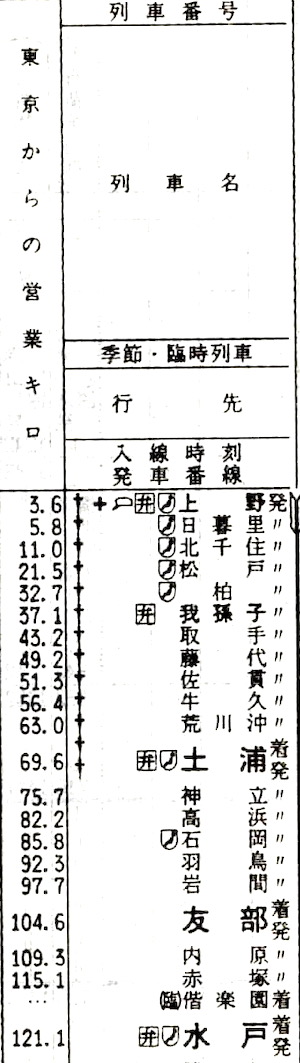 列車番号
東京からの営業キロ
列車名
季節・臨時列車
行先
入線時刻
発車番線
3.6 弁 上野 発
5.8 日暮里 〃
11.0 北千住 〃
21.5 松戸 〃
32.7 柏 〃
37.1 弁 我孫子 〃
43.2 取手 〃
49.2 藤代 〃
51.3 佐貫 〃
56.4 牛久 〃
63.0 荒川沖 〃
69.6 弁 土浦 着発
75.7 神立 〃
82.2 高浜 〃
85.8 石岡 〃
92.3 羽鳥 〃
97.7 岩間 〃
104.6 友部 着発
109.3 内原 〃
115.1 赤塚 〃
… (臨)偕楽園 着
121.1 弁 水戸 着発